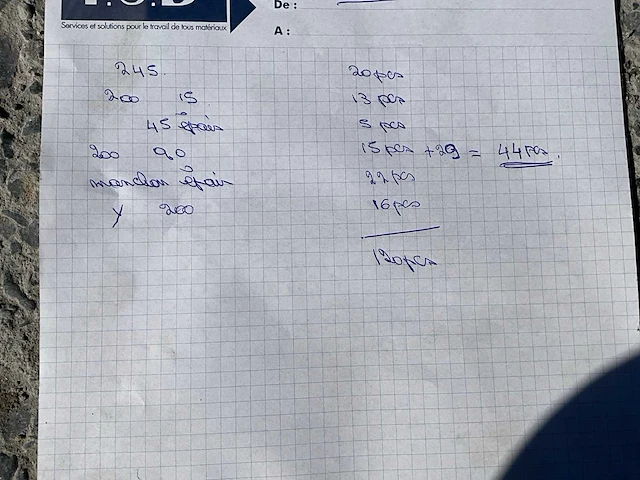 Services et solutions pour le travail de tous matériaux
De :
A :
245. 20 pcs
200 15 13 pcs
45 épais 5 pcs
200 90 15 pcs + 29 = 44 pcs.
manchon épais 22 pcs
Y 200 16 pcs
120 pcs